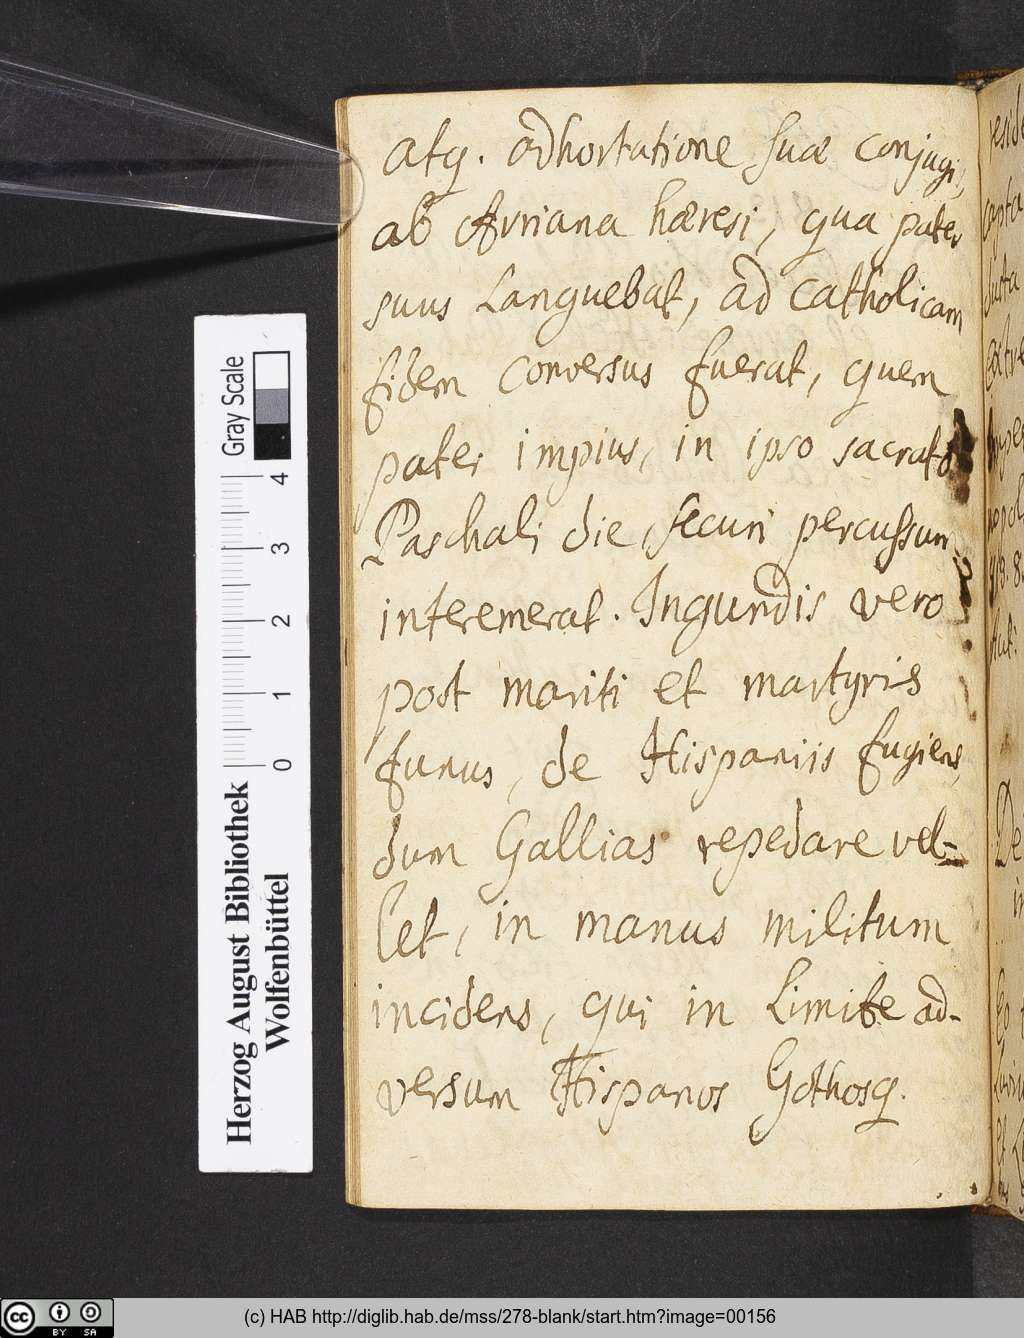 atq. adhortatione suæ conjugi,
ab Arriana hæresi, qua pater
suus Languebat, ad catholicam
fidem conversus fuerat, quem
pater impius, in ipso sacrato
Paschali die, securi percussum
interemerat. Ingundis vero
post mariti et martyris
funus, de Hispaniis fugiens,
dum Gallias repedare vel-
let, in manus militum
incidens, qui in Limite ad-
versum Hispanos Gothosq.
Gray Scale
4
3
2
1
0
Herzog August Bibliothek
Wolfenbüttel
cc BY SA
(c) HAB http://diglib.hab.de/mss/278-blank/start.htm?image=00156